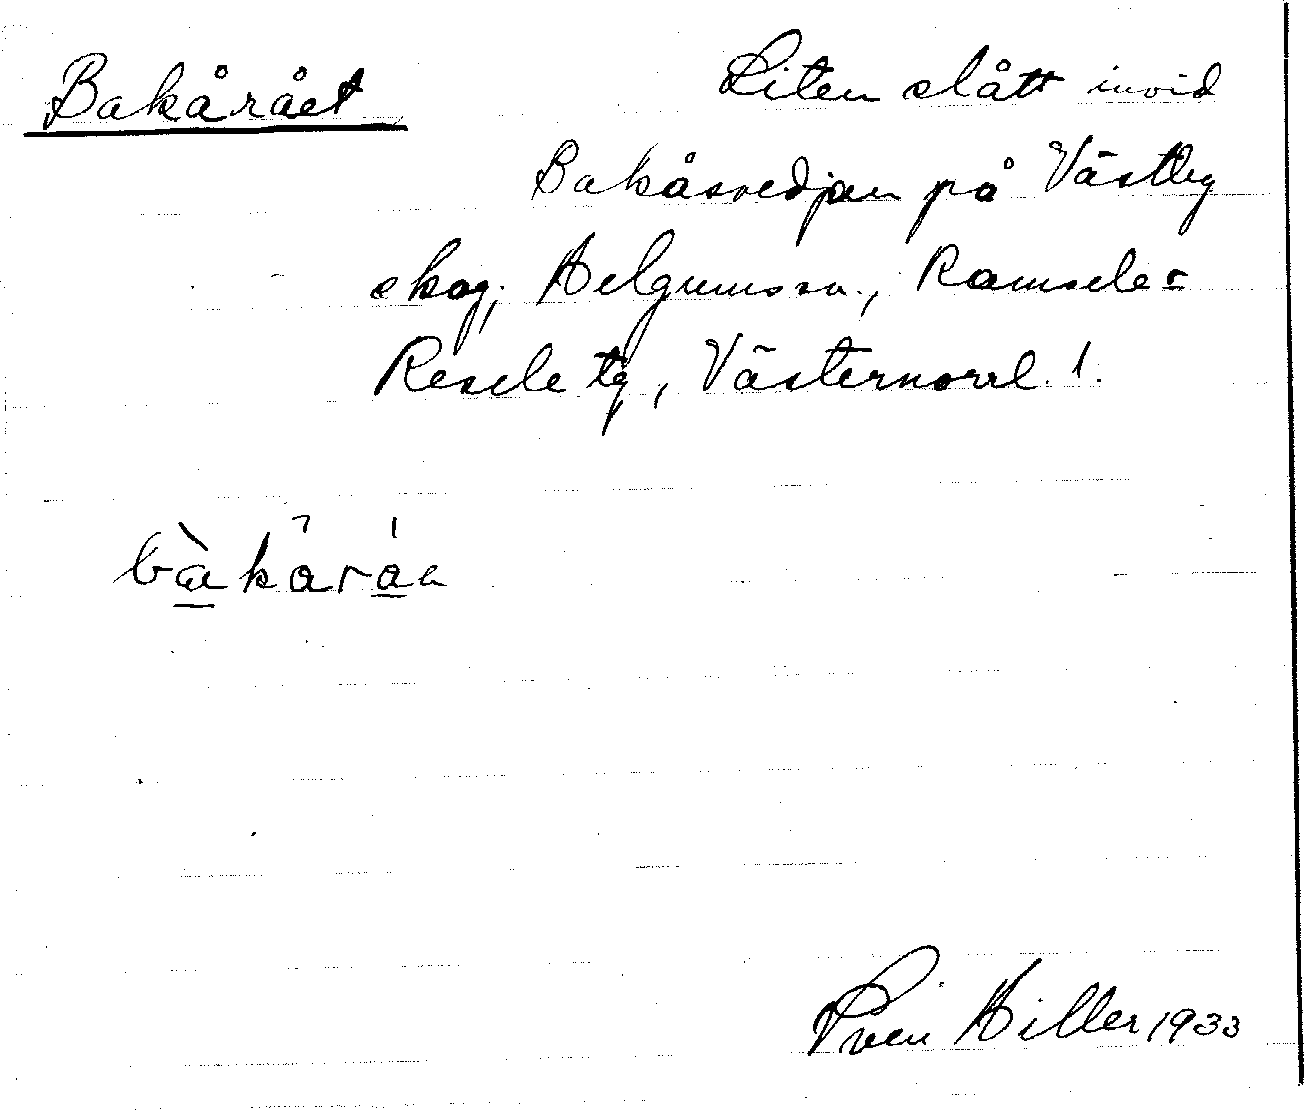 Bakårået
Liten slått invid
Bakåsvedjan på Västbyg
skog, Helgumssn., Ramsele-
Resele tg, Västernorrl. l.
bàkåråa
Sven Hiller 1933